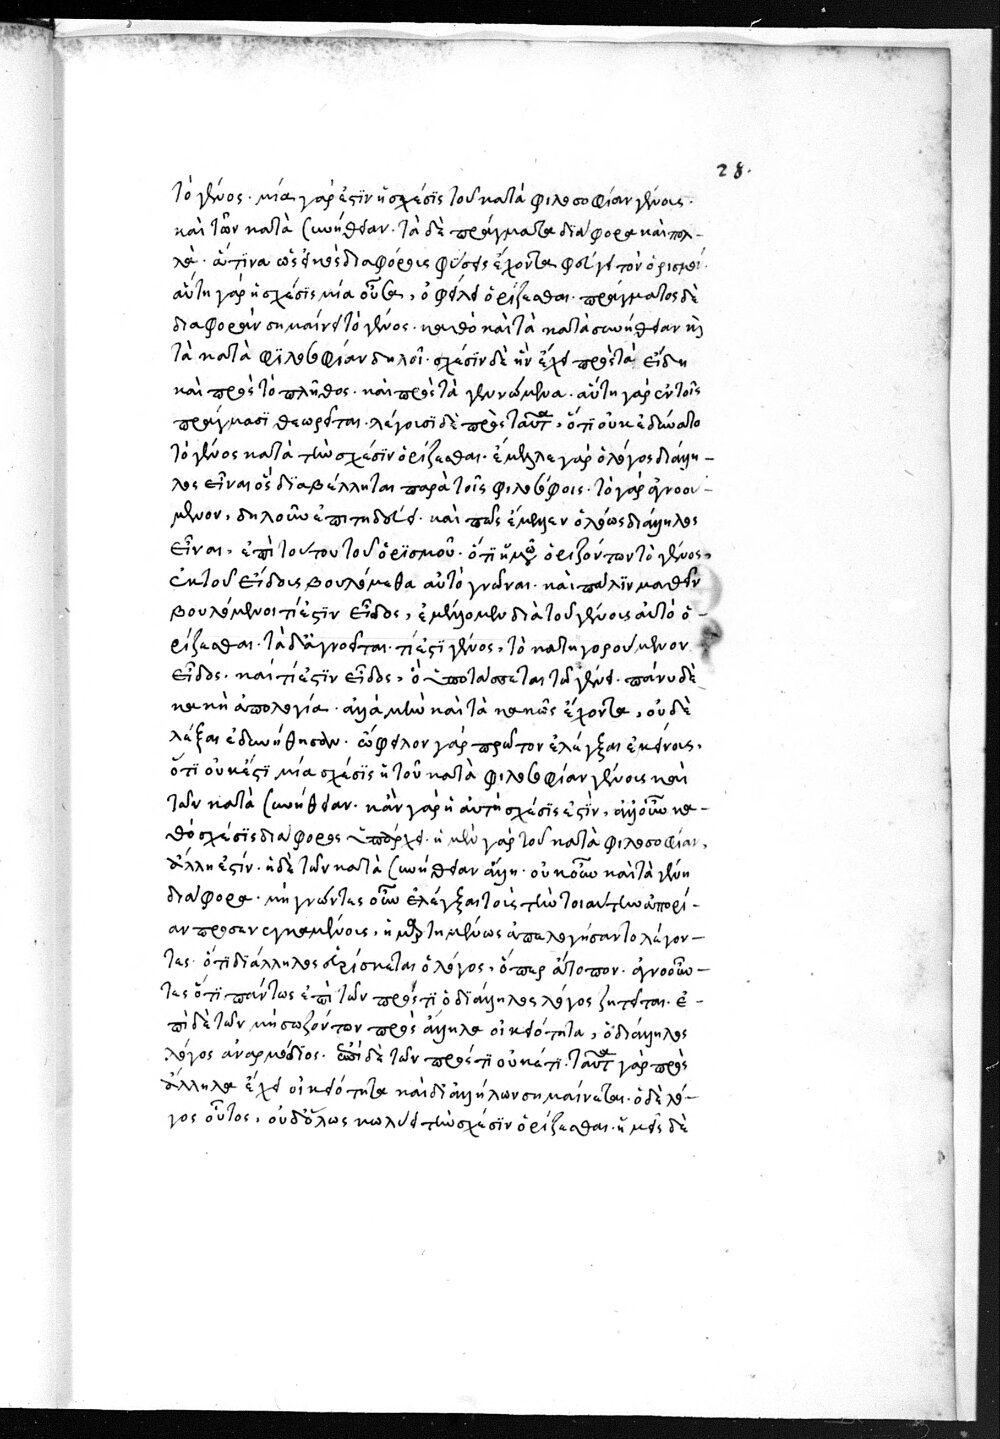 28.
τὸ γένος. μία γάρ ἐστϊν ἡ σχέσϊς τοῦ κατὰ φιλοσοφίαν γένους.
καὶ τῶν κατὰ συνήθειαν. τὰ δὲ πράγματα διάφορα καὶ πολ-
λά. ἅτϊνα ὡς εἰκὸς διαφόρους φύσεις ἔχοντα φεύγει τὸν ὁρισμόν.
αὕτη γὰρ ἡ σχέσϊς μία οὖσα, ὀφείλει ὁρίζεσθαι. πράγματος δὲ
διαφορὰν σημαίνει τὸ γένος. καθὸ καὶ τὰ κατὰ συνήθειαν καὶ
τὰ κατὰ φϊλοσοφίαν δηλοῖ. σχέσϊν δὲ ἣν ἔχει πρὸς τὰ εἴδη
καὶ πρὸς τὸ πλῆθος. καὶ πρὸς τὰ γεννώμενα. αὕτη γὰρ ἐν τοῖς
πράγμασϊ θεωρεῖται. λέγουσϊ δὲ πρὸς ταῦτα, ὅτϊ οὐκ ἐδύνατο
τὸ γένος κατὰ τὴν σχέσϊν ὁρίζεσθαι. ἔμελλε γὰρ ὁ λόγος διάλλη-
λος εἶναι ὃς διαβέλληται παρὰ τοῖς φιλοσόφοις. τὸ γὰρ ἀγνοού-
μενον, δηλοῦν ἐπιτηδεύει. καὶ πῶς ἔμελλεν ὁ λόγος διάλληλος
εἶναι, ἐπὶ τούτου τοῦ ὁρϊσμοῦ. ὅτϊ ἡμῶν ὁριζόντων τὸ γένος,
ἐκ τοῦ εἴδους βουλόμεθα αὐτὸ γνῶναι. καὶ πάλϊν μαθεῖν
βουλόμενοι τί ἐστϊν εἶδος, ἐμέλλομεν διὰ τοῦ γένους αὐτὸ ὁ-
ρίζεσθαι. τὰ δι' ἀγνοεῖται. τί ἐστϊ γένος, τὸ κατηγορούμενον
εἶδος. καὶ τί ἐστϊν εἶδος, ὃ ὑποτάσσεται τῷ γένει. πάνυ δὲ
κακὴ ἀπολογία. ἀλλὰ μὴν καὶ τὰ κακῶς ἔχοντα, οὐδὲ
λέξαι ἐδυνήθησαν. ὤφειλον γὰρ πρῶτον ἐλέγξαι ἐκείνους,
ὅτϊ οὐκ ἔστϊ μία σχέσϊς ἡ τοῦ κατὰ φιλοσοφίαν γένους καὶ
τῶν κατὰ συνήθειαν. κἂν γὰρ ἡ αὐτὴ σχέσϊς ἐστϊν, ἀλλ' οὖν κα-
θὸ σχέσϊς διάφορος ὑπάρχει. ἡ μὲν γὰρ τοῦ κατὰ φιλοσοφίαν,
ἄλλη ἐστίν. ἡ δὲ τῶν κατὰ συνήθειαν ἄλλη. οὐκοῦν καὶ τὰ γένη
διάφορα. μὴ γνώντας οὖν ἐλέγξαι τοὺς τὴν τοιαύτην ἀπορί-
αν προσενεγκαμένους, ἡμαρτημένως ἀπελογήσαντο λέγον-
τες. ὅτϊ διάλληλος εὑρίσκεται ὁ λόγος, ὅπερ ἄτοπον. ἀγνοοῦν-
τες ὅτϊ πάντως ἐπὶ τῶν πρός τϊ ὁ διάλληλος λόγος ζητεῖται. ἐ-
πὶ δὲ τῶν μὴ σωζόντων πρὸς ἄλληλα οἰκειότητα, ὁ διάλληλος
λόγος ἀναρμόδϊος. ἐπὶ δὲ τῶν πρός τϊ οὐκέτι. ταῦτα γὰρ πρὸς
ἄλληλα ἔχει οἰκειότητα καὶ δι' ἀλλήλων σημαίνεται. ὁ δὲ λό-
γος οὗτος, οὐδ' ὅλως κωλύει τὴν σχέσϊν ὁρίζεσθαι. ἡμεῖς δὲ